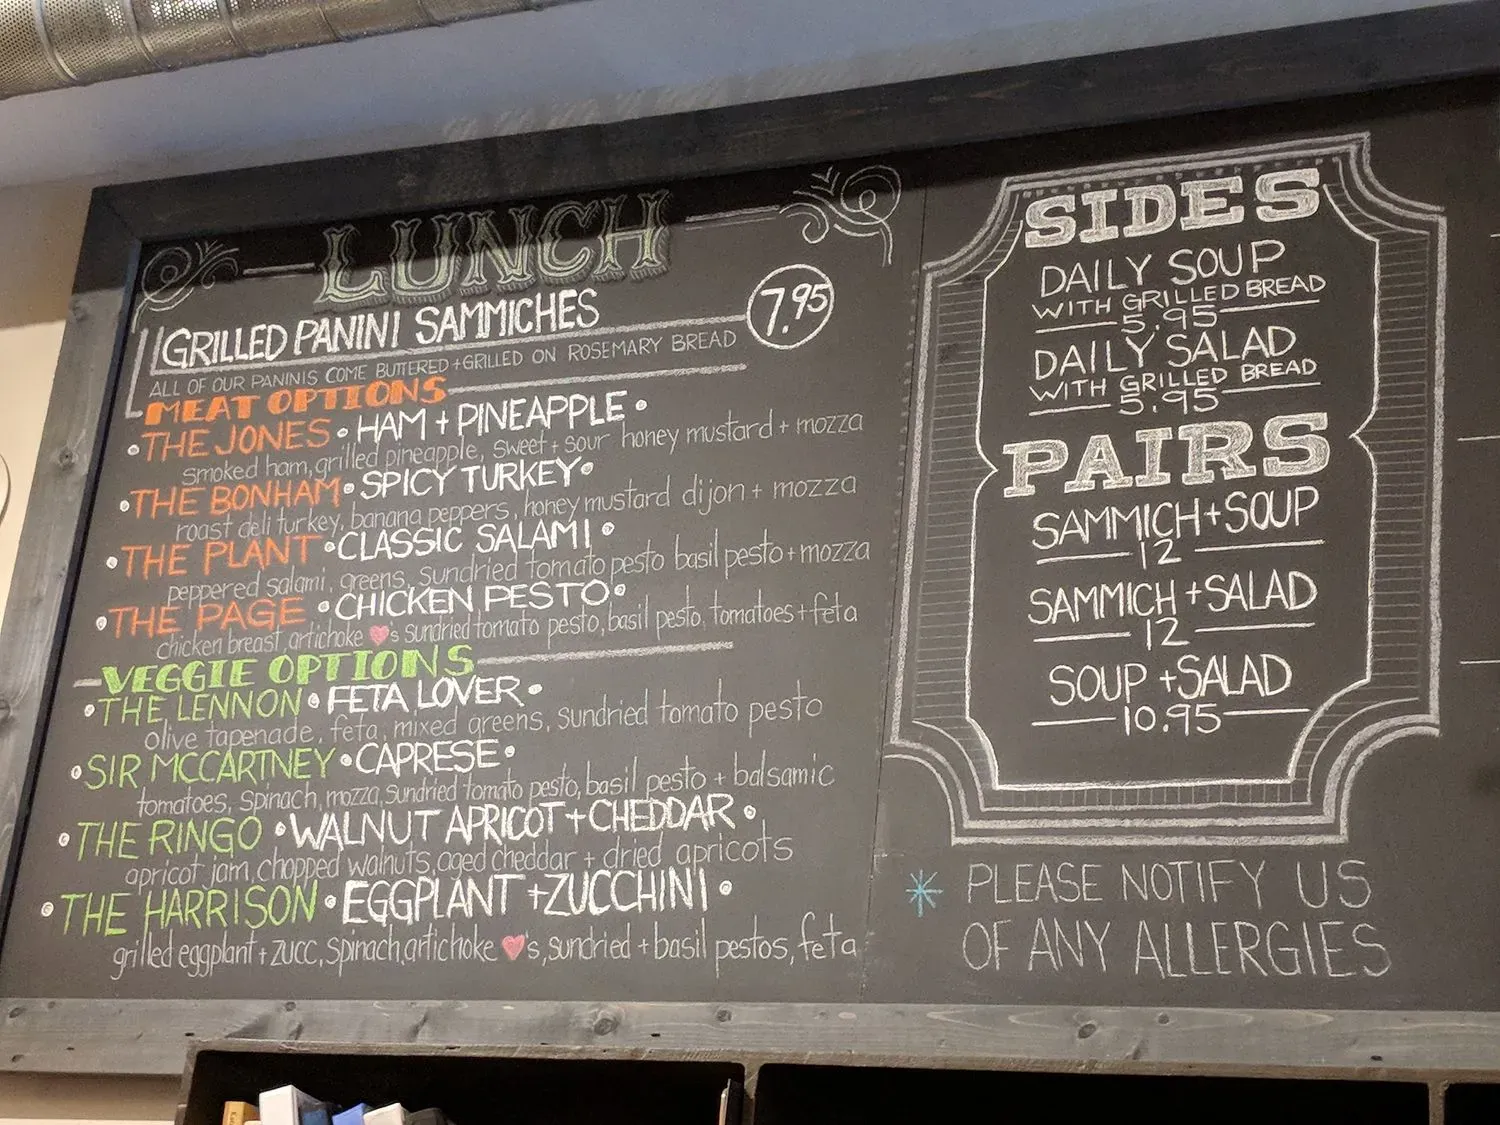 LUNCH
GRILLED PANINI SAMMICHES
7.95
ALL OF OUR PANINIS COME BUTTERED + GRILLED ON ROSEMARY BREAD
MEAT OPTIONS
• THE JONES • HAM + PINEAPPLE •
smoked ham, grilled pineapple, sweet + sour honey mustard + mozza
• THE BONHAM • SPICY TURKEY •
roast deli turkey, banana peppers, honey mustard dijon + mozza
• THE PLANT • CLASSIC SALAMI •
peppered salami, greens, sundried tomato pesto basil pesto + mozza
• THE PAGE • CHICKEN PESTO •
chicken breast, artichoke ♥'s sundried tomato pesto, basil pesto, tomatoes + feta
VEGGIE OPTIONS
• THE LENNON • FETA LOVER •
olive tapenade, feta, mixed greens, sundried tomato pesto
• SIR MCCARTNEY • CAPRESE •
tomatoes, spinach, mozza, sundried tomato pesto, basil pesto + balsamic
• THE RINGO • WALNUT APRICOT + CHEDDAR •
apricot jam, chopped walnuts, aged cheddar + dried apricots
• THE HARRISON • EGGPLANT + ZUCCHINI •
grilled eggplant + zucc, spinach, artichoke ♥'s, sundried + basil pestos, feta
SIDES
DAILY SOUP
WITH GRILLED BREAD
5.95
DAILY SALAD
WITH GRILLED BREAD
5.95
PAIRS
SAMMICH + SOUP
12
SAMMICH + SALAD
12
SOUP + SALAD
10.95
* PLEASE NOTIFY US
OF ANY ALLERGIES